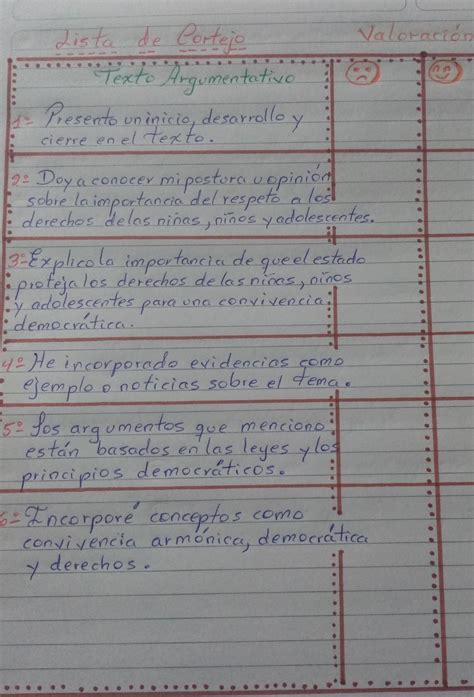 Lista de Cortejo Valoración
Texto Argumentativo
1º Presento un inicio, desarrollo y
cierre en el texto.
2º Doy a conocer mi postura u opinión
sobre la importancia del respeto a los
derechos de las niñas, niños y adolescentes.
3º Explico la importancia de que el estado
proteja los derechos de las niñas, niños
y adolescentes para una convivencia
democrática.
4º He incorporado evidencias como
ejemplo o noticias sobre el tema.
5º Los argumentos que menciono
están basados en las leyes y los
principios democráticos.
6º Incorporé conceptos como
convivencia armónica, democrática
y derechos.